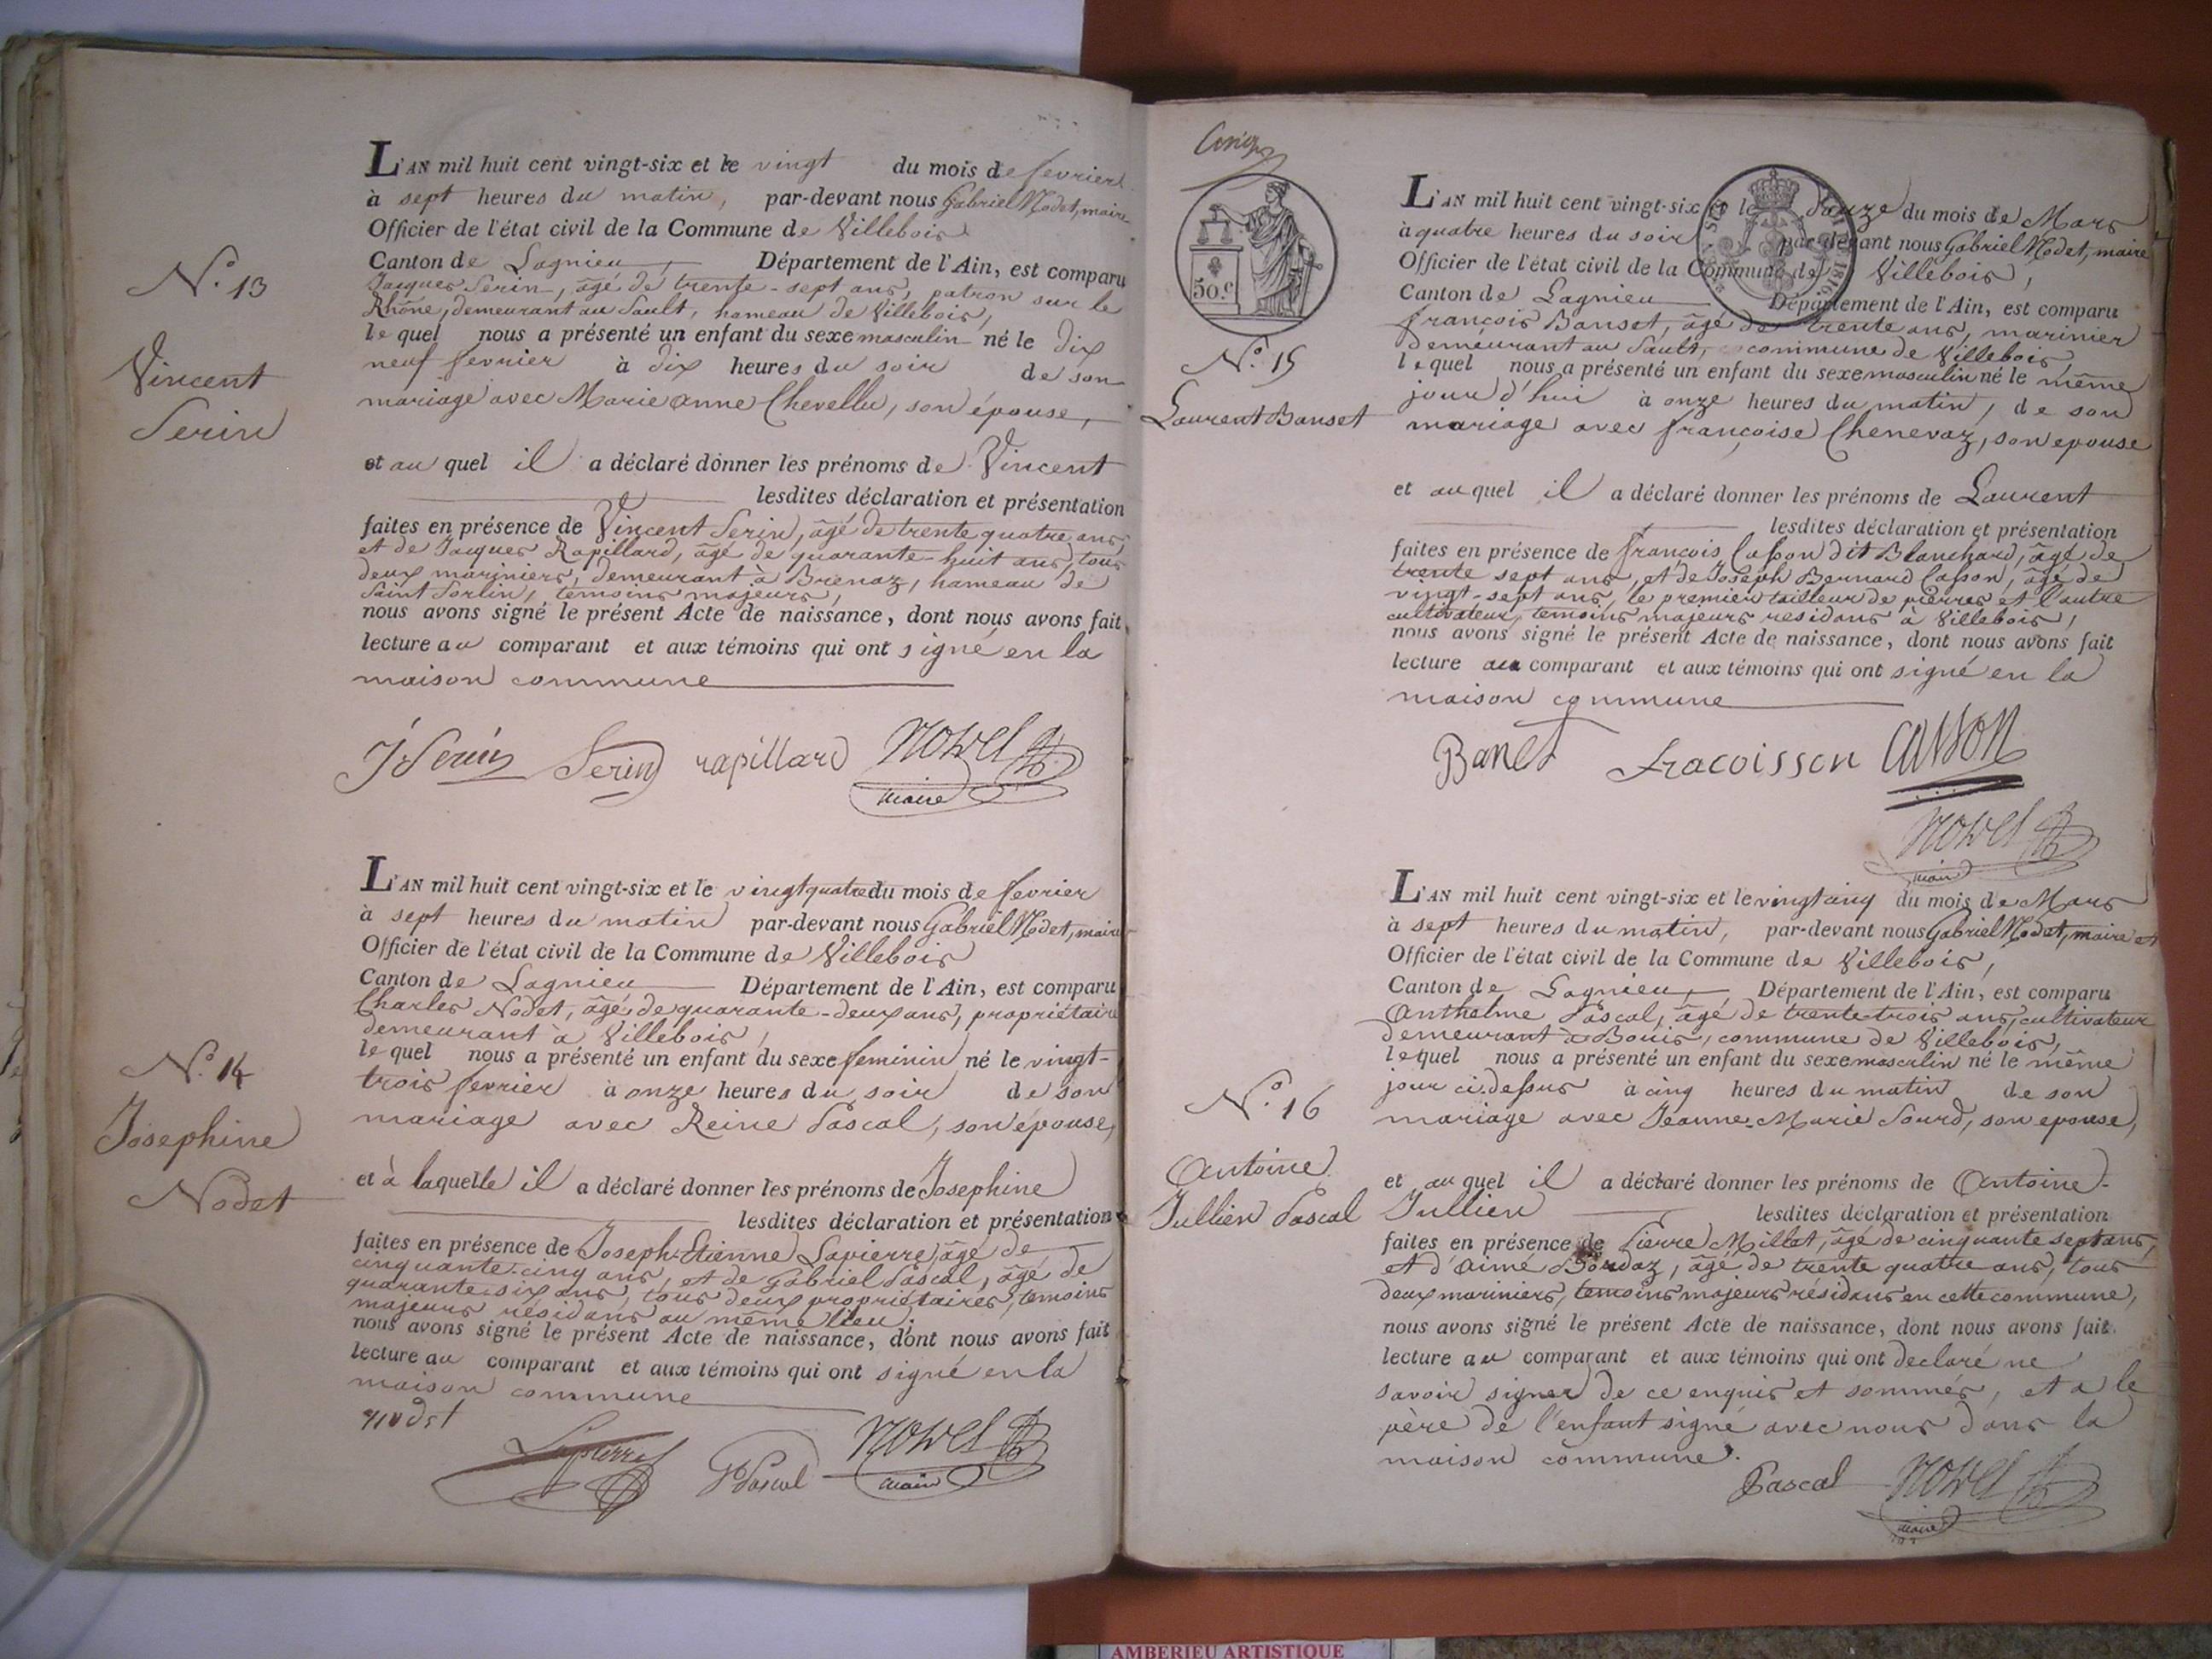 N.º 13
Vincent
Serin
L'AN mil huit cent vingt-six et le vingt du mois de fevrier
à sept heures du matin, par-devant nous Gabriel Nodet, maire
Officier de l'état civil de la Commune de Villebois
Canton de Lagnieu, Département de l'Ain, est comparu
Jacques Serin, âgé de trente-sept ans, patron sur le
Rhône, demeurant au Sault, hameau de Villebois,
lequel nous a présenté un enfant du sexe masculin né le dix
neuf fevrier à dix heures du soir de son
mariage avec Marie anne Chevellu, son épouse,
et au quel il a déclaré donner les prénoms de Vincent
lesdites déclaration et présentation
faites en présence de Vincent Serin, âgé de trente quatre ans,
et de Jacques Rapillard, âgé de quarante-huit ans, tous
deux mariniers, demeurant à Brenaz, hameau de
Saint Sorlin, temoins majeurs,
nous avons signé le présent Acte de naissance, dont nous avons fait
lecture au comparant et aux témoins qui ont signé en la
maison commune
J Serin Serin rapillard Nodet
maire
N.º 14
Josephine
Nodet
L'AN mil huit cent vingt-six et le vingt quatre du mois de fevrier
à sept heures du matin par-devant nous Gabriel Nodet, maire
Officier de l'état civil de la Commune de Villebois
Canton de Lagnieu Département de l'Ain, est comparu
Charles Nodet, âgé de quarante-deux ans, propriétaire
demeurant à Villebois,
lequel nous a présenté un enfant du sexe feminin né le vingt-
trois fevrier à onze heures du soir de son
mariage avec Reine Pascal, son épouse,
et à laquelle il a déclaré donner les prénoms de Josephine
lesdites déclaration et présentation
faites en présence de Joseph-Etienne Lapierre, âgé de
cinquante-cinq ans, et de Gabriel Pascal, âgé de
quarante-six ans, tous deux propriétaires, temoins
majeurs résidans au même lieu,
nous avons signé le présent Acte de naissance, dont nous avons fait
lecture au comparant et aux témoins qui ont signé en la
maison commune
nodet
Lapierre G Pascal Nodet
maire
50.c
N.º 15
Laurent Banset
L'AN mil huit cent vingt-six et le douze du mois de Mars
à quatre heures du soir par-devant nous Gabriel Nodet, maire
Officier de l'état civil de la Commune de Villebois,
Canton de Lagnieu Département de l'Ain, est comparu
françois Banset, âgé de trente ans, marinier
demeurant au Sault, commune de Villebois,
lequel nous a présenté un enfant du sexe masculin né le même
jour d'hui à onze heures du matin, de son
mariage avec françoise Chenevaz, son epouse
et au quel il a déclaré donner les prénoms de Laurent
lesdites déclaration et présentation
faites en présence de françois Casson dit Blanchard, âgé de
trente sept ans, et de Joseph Bernard Casson, âgé de
vingt-sept ans, le premier tailleur de pierres et l'autre
cultivateur, temoins majeurs residans à Villebois,
nous avons signé le présent Acte de naissance, dont nous avons fait
lecture au comparant et aux témoins qui ont signé en la
maison commune
Banet fracoisson Casson
Nodet
maire
N.º 16
Antoine
Jullien Pascal
L'AN mil huit cent vingt-six et le vingt cinq du mois de Mars
à sept heures du matin, par-devant nous Gabriel Nodet, maire et
Officier de l'état civil de la Commune de Villebois,
Canton de Lagnieu, Département de l'Ain, est comparu
Anthelme Pascal, âgé de trente-trois ans, cultivateur
demeurant à Bouis, commune de Villebois,
lequel nous a présenté un enfant du sexe masculin né le même
jour ci-dessus à cinq heures du matin de son
mariage avec Jeanne-Marie Sourd, son epouse,
et au quel il a déclaré donner les prénoms de Antoine-
Jullien lesdites déclaration et présentation
faites en présence de Pierre Millat, âgé de cinquante sept ans,
et d'Aimé Bordaz, âgé de trente quatre ans, tous
deux mariniers, temoins majeurs résidans en cette commune,
nous avons signé le présent Acte de naissance, dont nous avons fait
lecture au comparant et aux témoins qui ont declaré ne
savoir signer de ce enquis et sommés, et a le
père de l'enfant signé avec nous dans la
maison commune.
Pascal Nodet
maire
AMBERIEU ARTISTIQUE